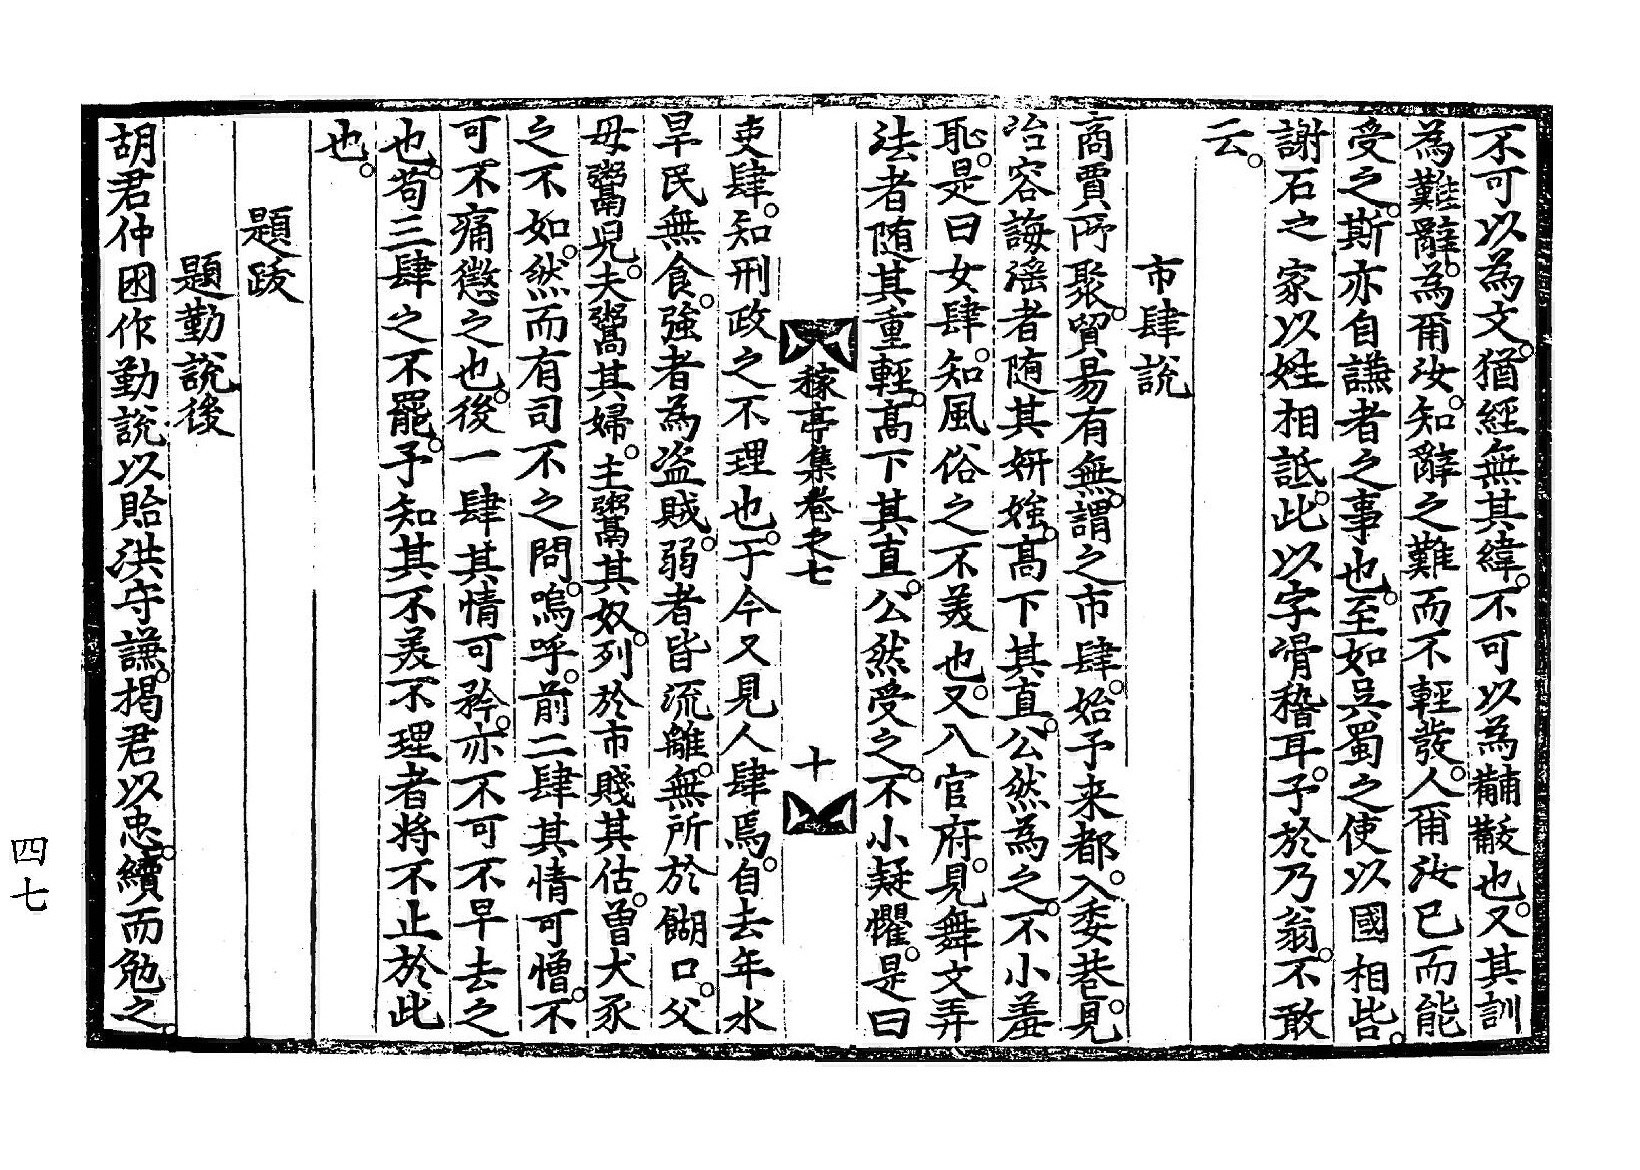 不可以為文。猶經無其緯。不可以為黼黻也。又其訓
為難辭。為爾汝。知辭之難而不輕發。人爾汝已而能
受之。斯亦自謙者之事也。至如吳蜀之使以國相呰。
謝石之家以姓相詆。此以字滑稽耳。予於乃翁。不敢
云。
市肆說
商賈所聚。貿易有無。謂之市肆。始予来都。入委巷。見
冶容誨淫者随其妍媸。高下其直。公然為之。不小羞
恥。是曰女肆。知風俗之不羙也。又入官府。見舞文弄
法者随其重輕。高下其直。公然受之。不小疑懼。是曰
稼亭集卷之七
十
吏肆。知刑政之不理也。于今又見人肆焉。自去年水
旱民無食。強者為盗賊。弱者皆流離。無所於餬口。父
母鬻兒。夫鬻其婦。主鬻其奴。列於市賤其估。曽犬豕
之不如。然而有司不之問。嗚呼。前二肆其情可憎。不
可不痛懲之也。後一肆其情可矜。亦不可不早去之
也。苟三肆之不罷。予知其不羙不理者将不止於此
也。
題跋
題勤說後
胡君仲困作勤說以貽洪守謙。揭君以忠。續而勉之。
四七